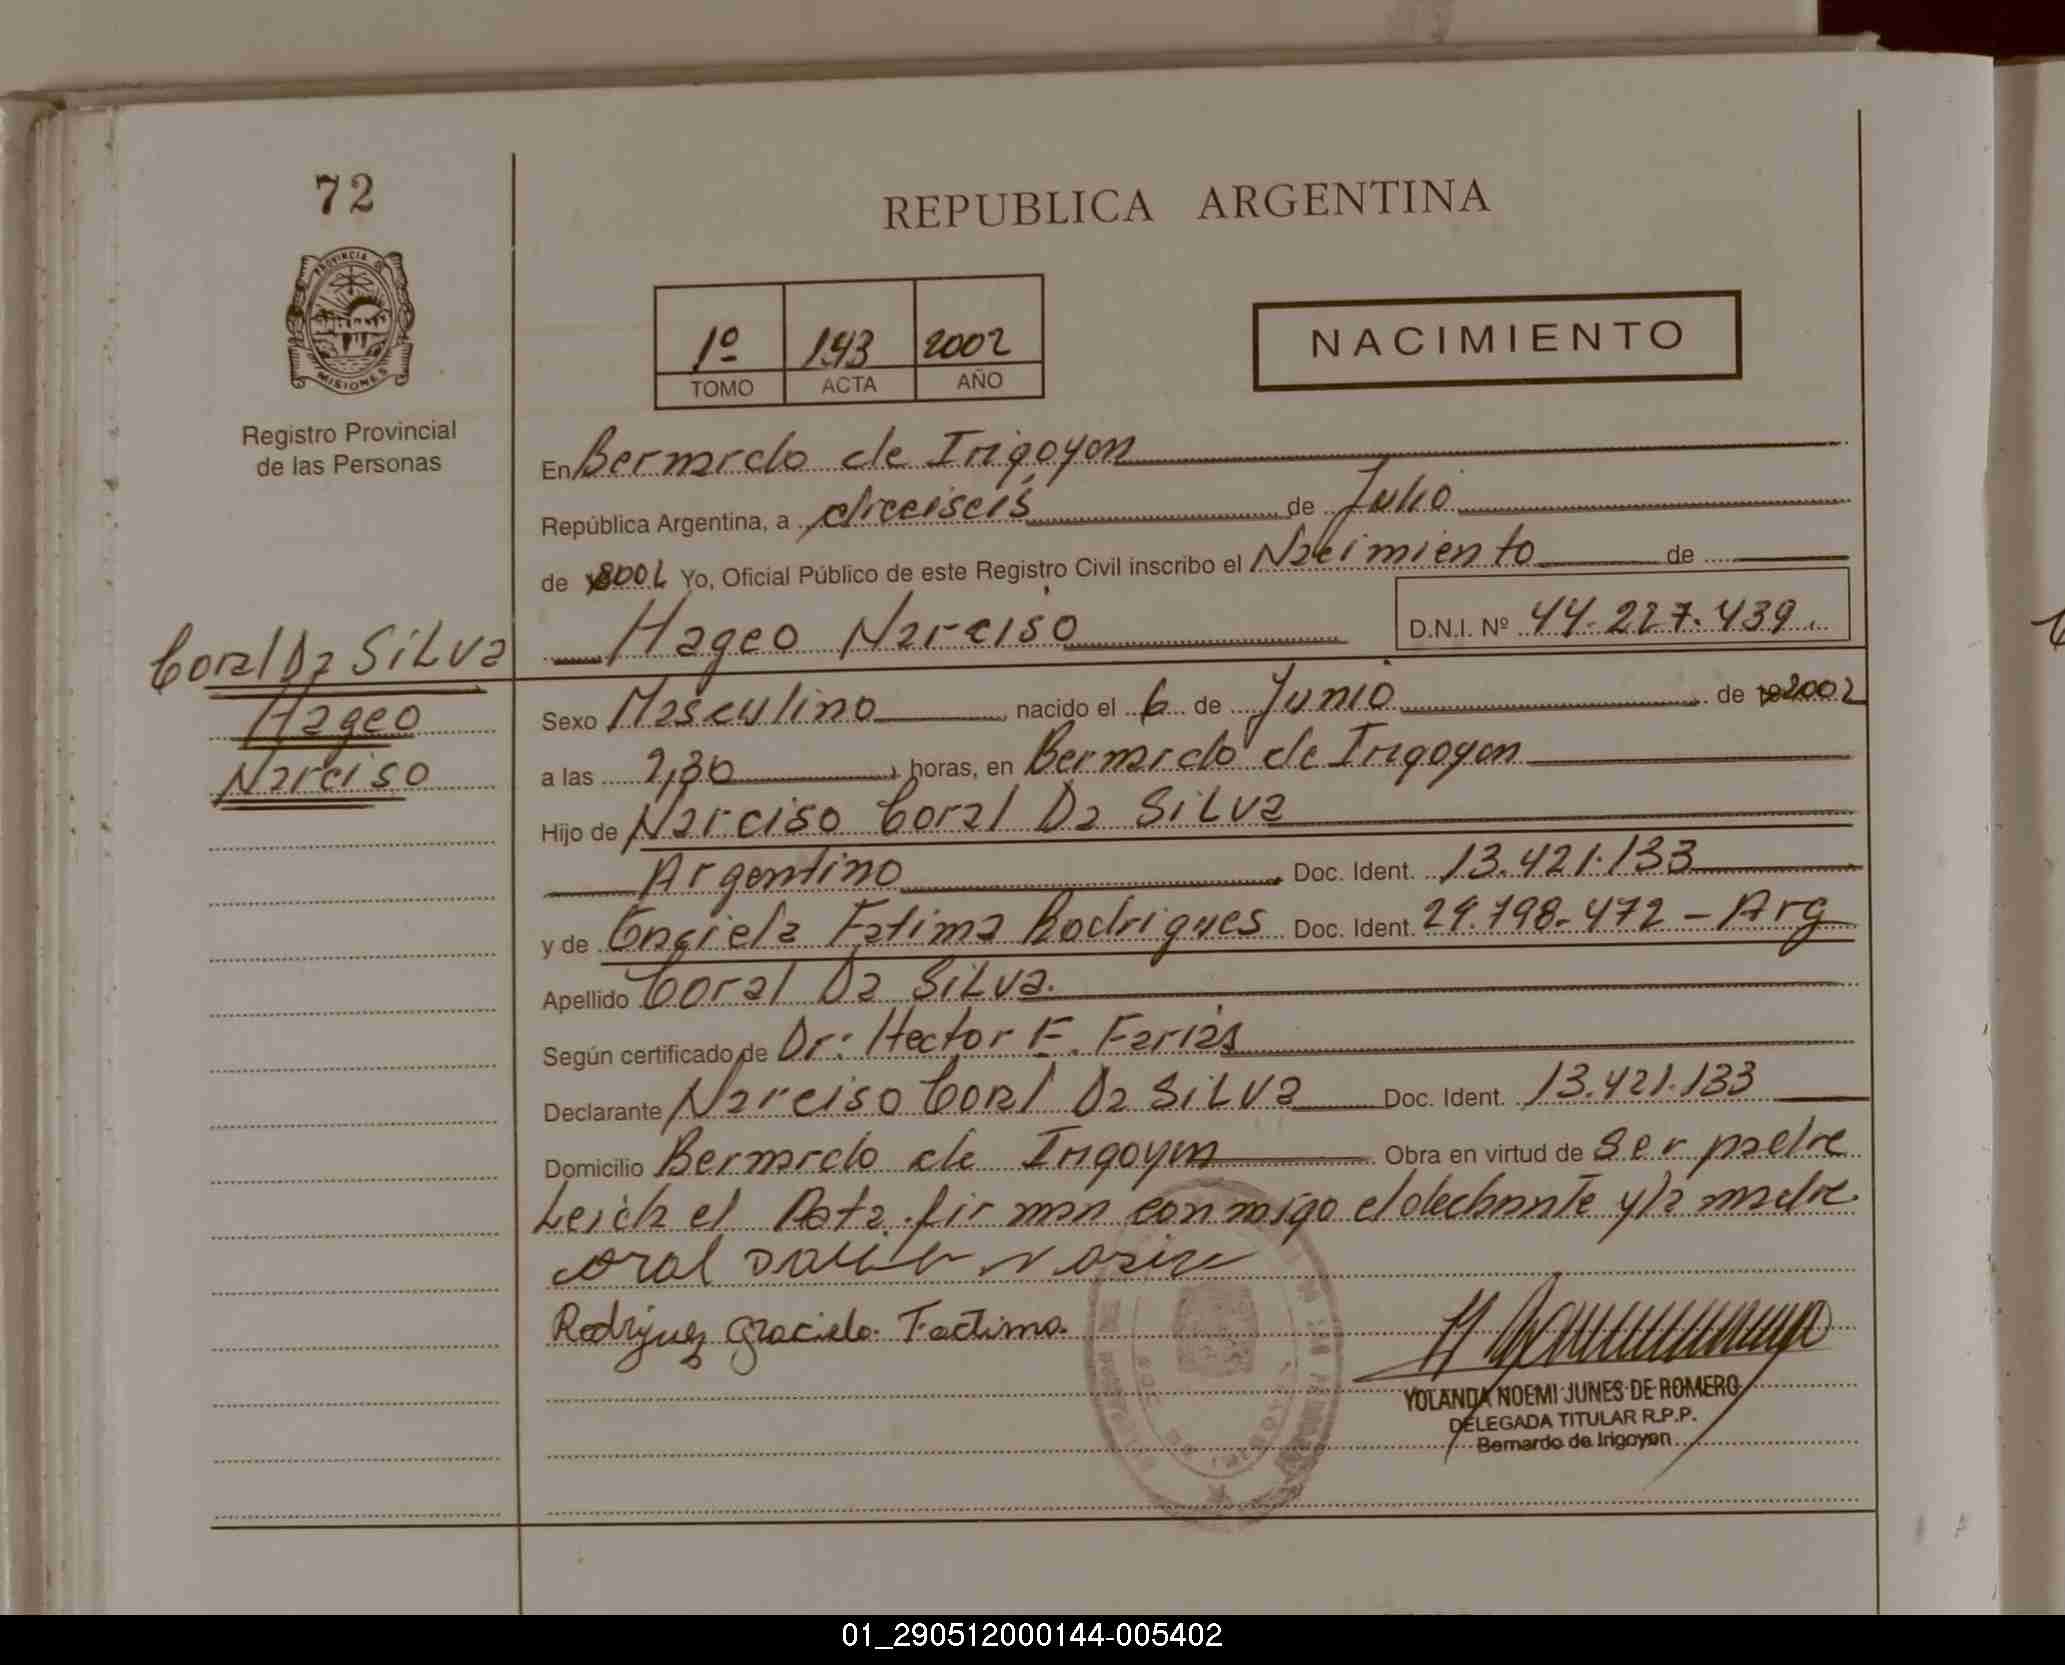 72
REPUBLICA ARGENTINA
PROVINCIA DE
MISIONES
Registro Provincial
de las Personas
1º 143 2002
TOMO ACTA AÑO
NACIMIENTO
En Bernardo de Irigoyen
República Argentina, a dieciseis de Julio
de 2002 Yo, Oficial Público de este Registro Civil inscribo el Nacimiento de
Hageo Narciso D.N.I. Nº 44.227.439.
Coral Da SiLva
Hageo
Narciso
Sexo Masculino nacido el 6 de Junio de 2002
a las 2,30 horas, en Bernardo de Irigoyen
Hijo de Narciso Coral Da SiLva
Argentino Doc. Ident. 13.421.133
y de Graciela Fatima Rodrigues Doc. Ident. 29.798.472 - Arg
Apellido Coral Da SiLva.
Según certificado de Dr: Hector E. Farias
Declarante Narciso Coral Da SiLva Doc. Ident. 13.421.133
Domicilio Bernardo de Irigoyen Obra en virtud de ser padre
Leida el Acta firman conmigo el declarante y la madre
Rodriguez Graciela Factima
YOLANDA NOEMI JUNES DE ROMERO
DELEGADA TITULAR R.P.P.
Bernardo de Irigoyen
01_290512000144-005402